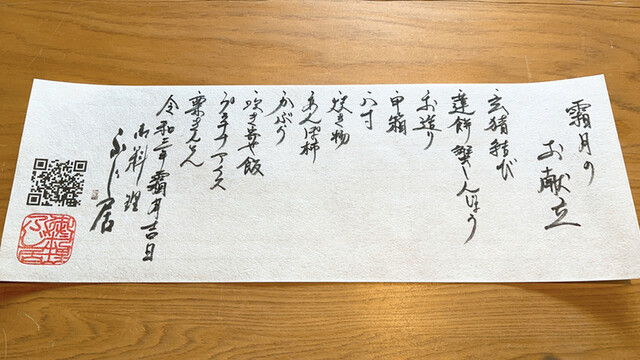 霜月の
お献立
玄猪結び
蓮餅 蟹しんじょう
お造り
甲箱
八寸
焼き物
あんぽ柿
かぶら
炊き寄せ飯
プラチナアイス
栗きんとん
令和三年霜月吉日
御料理
ふじ居